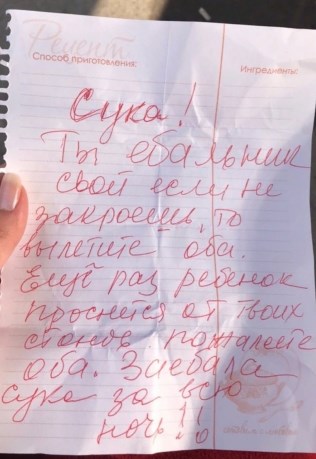 Рецепт
Способ приготовления:
Ингредиенты:
Сука!
Ты ебальник
свой если не
закроешь, то
вылетите оба.
Ещё раз ребенок
проснётся от твоих
стонов пожалеете
оба. Заебала
сука за всю
ночь!!